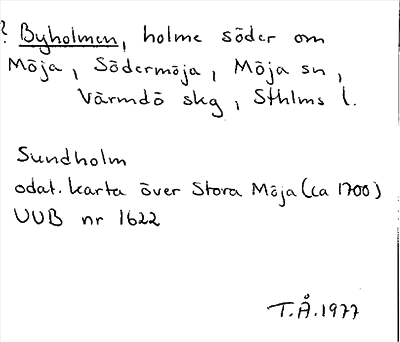 ? Byholmen, holme söder om
Möja, Södermöja, Möja sn,
Värmdö skg, Sthlms l.
Sundholm
odat. karta över Stora Möja (ca 1700)
UUB nr 1622
T.Å. 1977